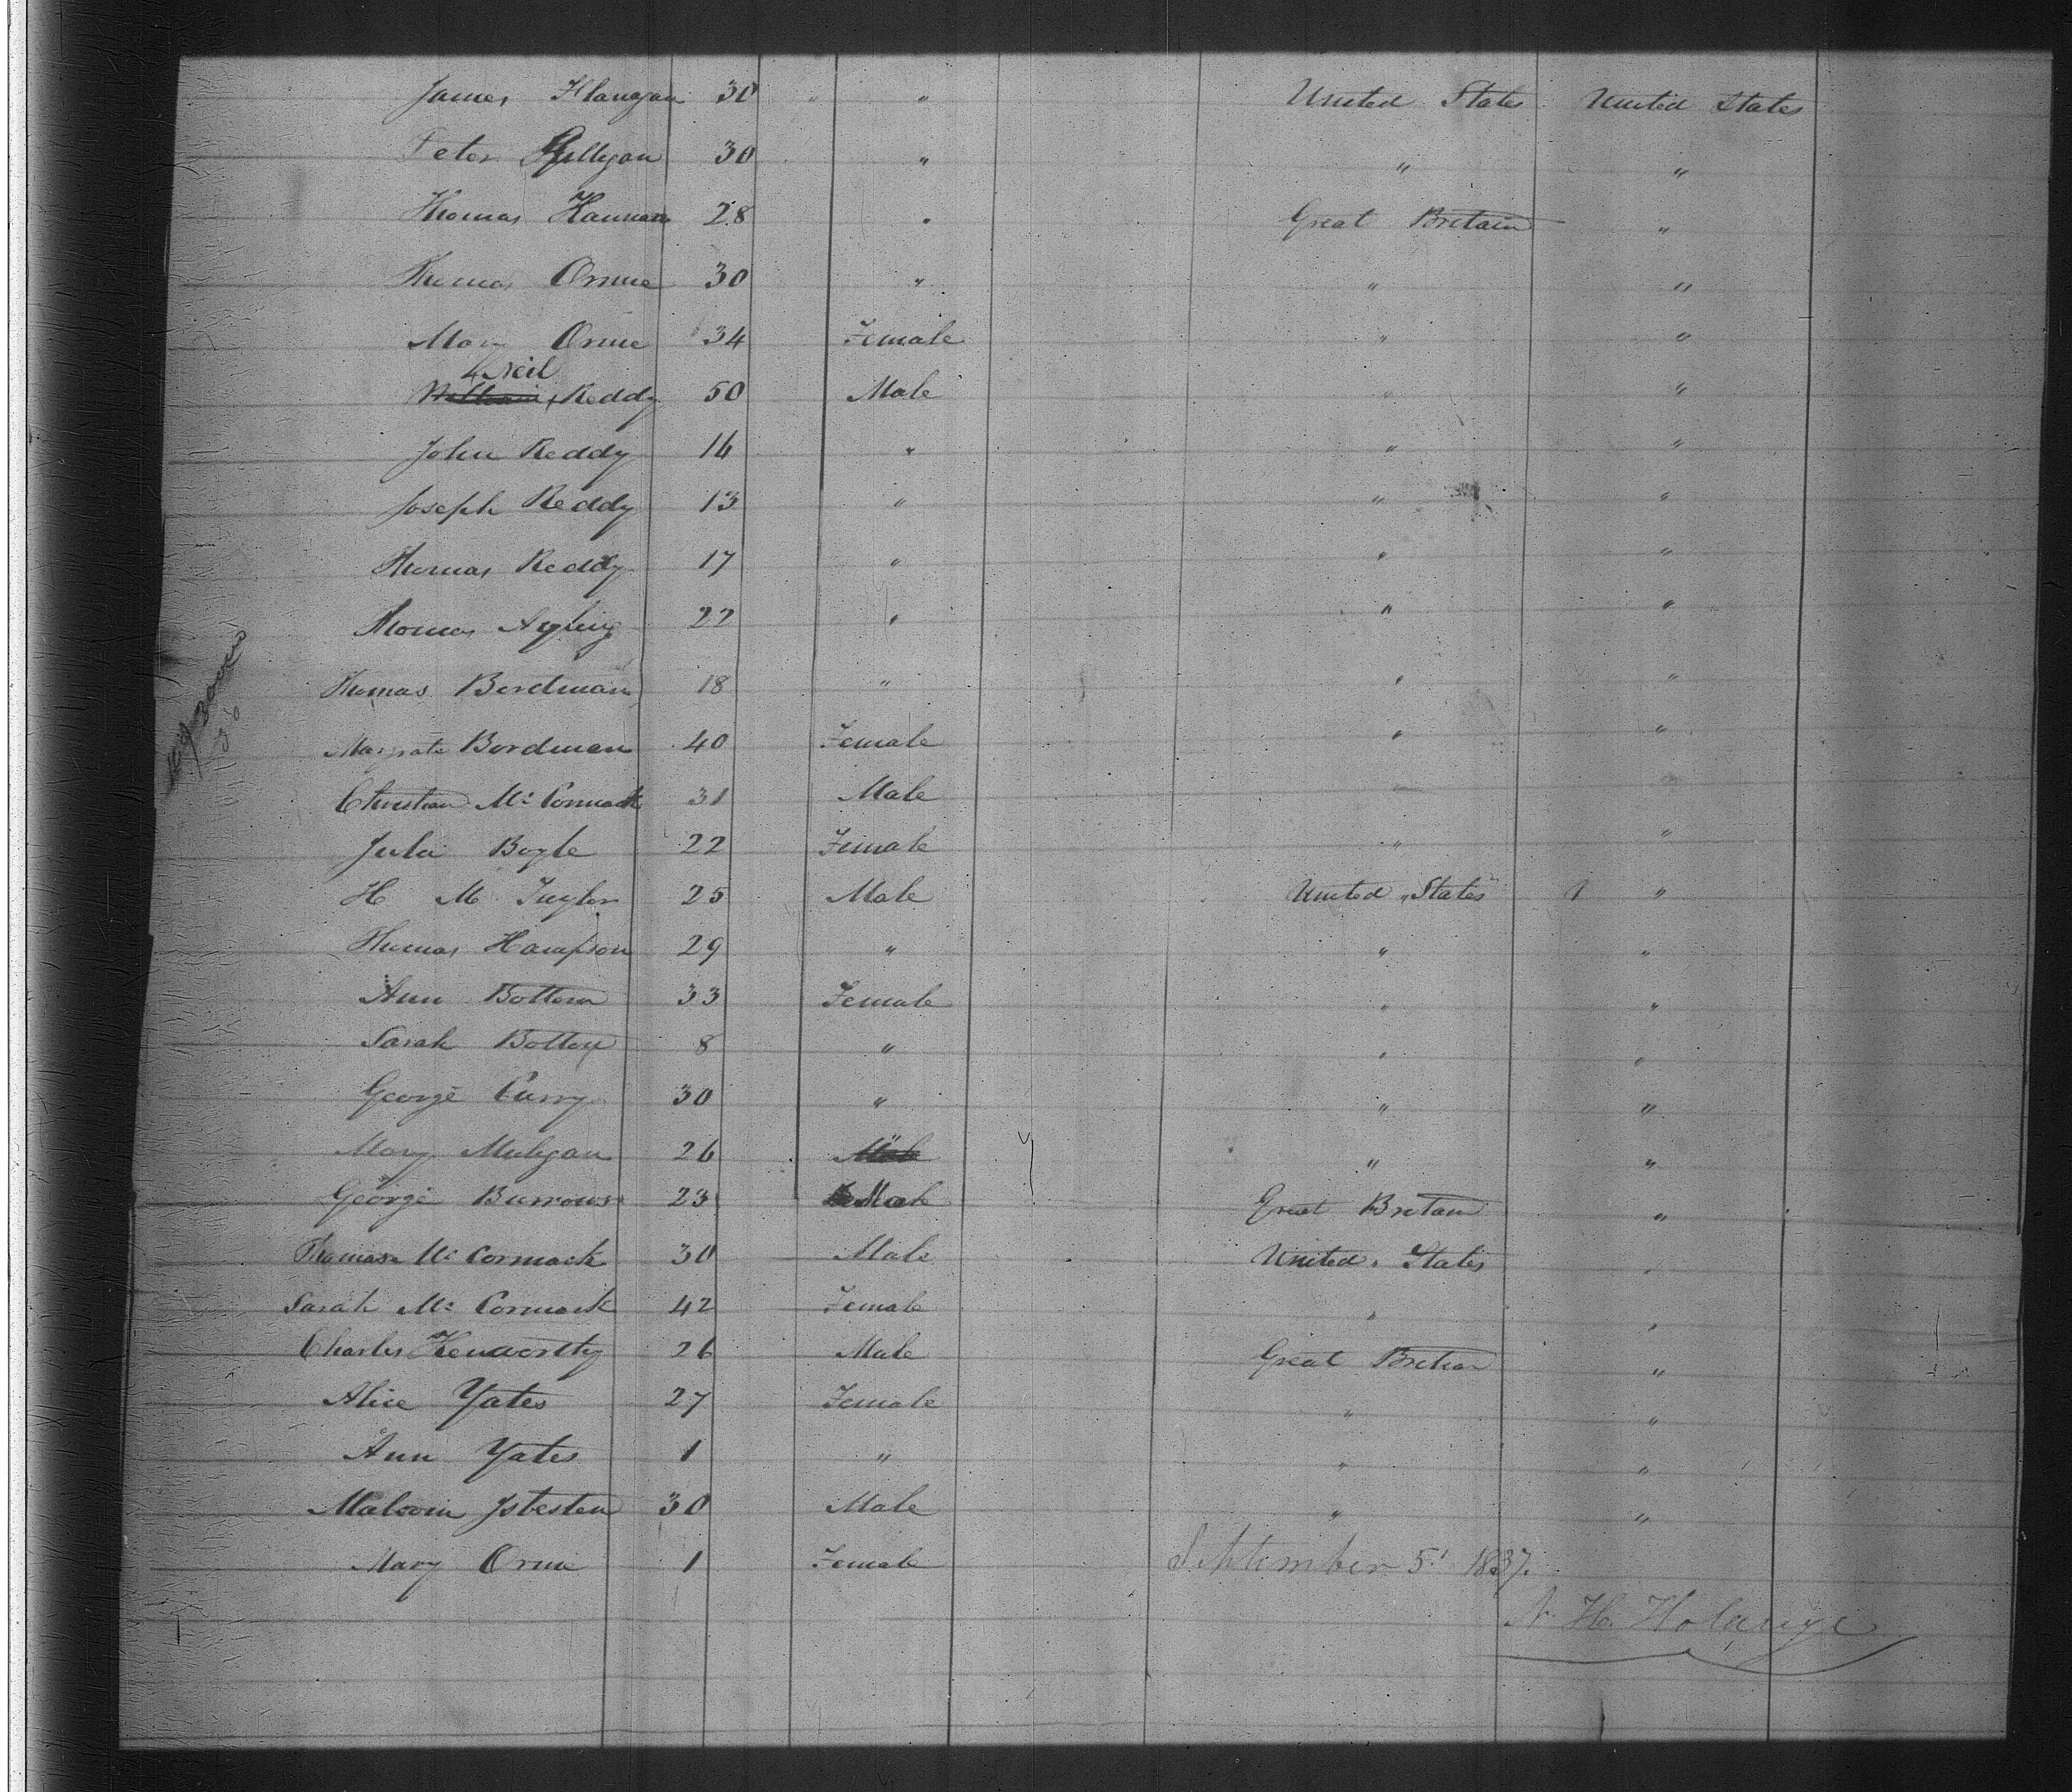 James Flanagan 30 " " United States United States
Peter Gilligan 30 " " "
Thomas Hannan 28 " Great Britain "
Thomas Orme 30 " " "
Mary Orme 34 Female " "
Neil
William Reddy 50 Male " "
John Reddy 16 " " "
Joseph Reddy 13 " " "
Thomas Reddy 17 " " "
Thomas Ayling 22 " " "
Thomas Bordman 18 " " "
Margrate Bordman 40 Female " "
Christian Mc Cormack 31 Male "
Julia Boyle 22 Female " "
H M Tuyler 25 Male United States "
Thomas Hampson 29 " " "
Ann Bottom 33 Female " "
Sarah Bottom 8 " " "
George Curry 30 " " "
Mary Muligan 26 Male " "
George Burrows 23 Male Great Britain "
Thomas Mc Cormack 30 Male United States "
Sarah Mc Cormack 42 Female " "
Charles Kenworthy 26 Male Great Britain "
Alice Yates 27 Female " "
Ann Yates 1 " " "
Malcom Isbesten 30 Male " "
Mary Orme 1 Female September 5t 1837.
N. H. Holdrege